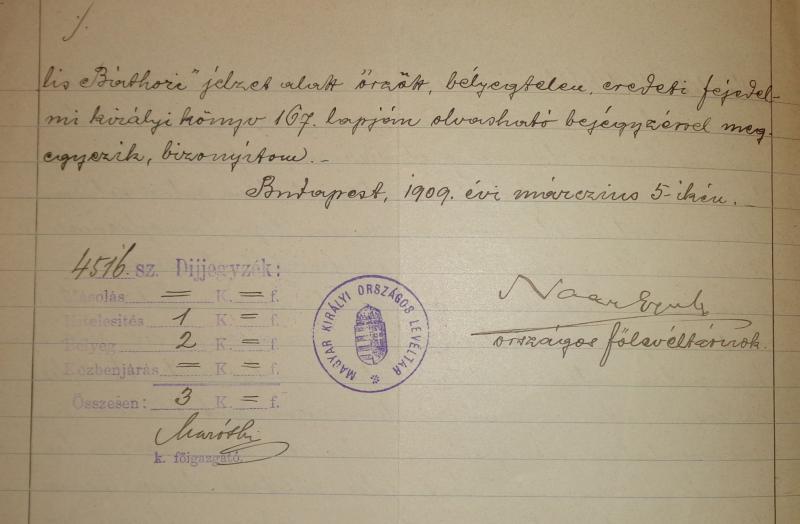 lis Báthori" jelzet alatt őrzött, bélyegtelen, eredeti fejedel-
mi királyi könyv 167. lapján olvasható bejégyzéssel meg-
egyezik, bizonyitom. –
Budapest, 1909. évi márczius 5-ikén. –
4516. sz. Dijjegyzék:
Másolás = K. = f.
Hitelesités 1 K. = f.
Bélyeg 2 K. = f.
Közbenjárás = K. = f.
Összesen: 3 K. = f.
k. főigazgató.
MAGYAR KIRÁLYI ORSZÁGOS LEVÉLTÁR
országos főlevéltárnok.